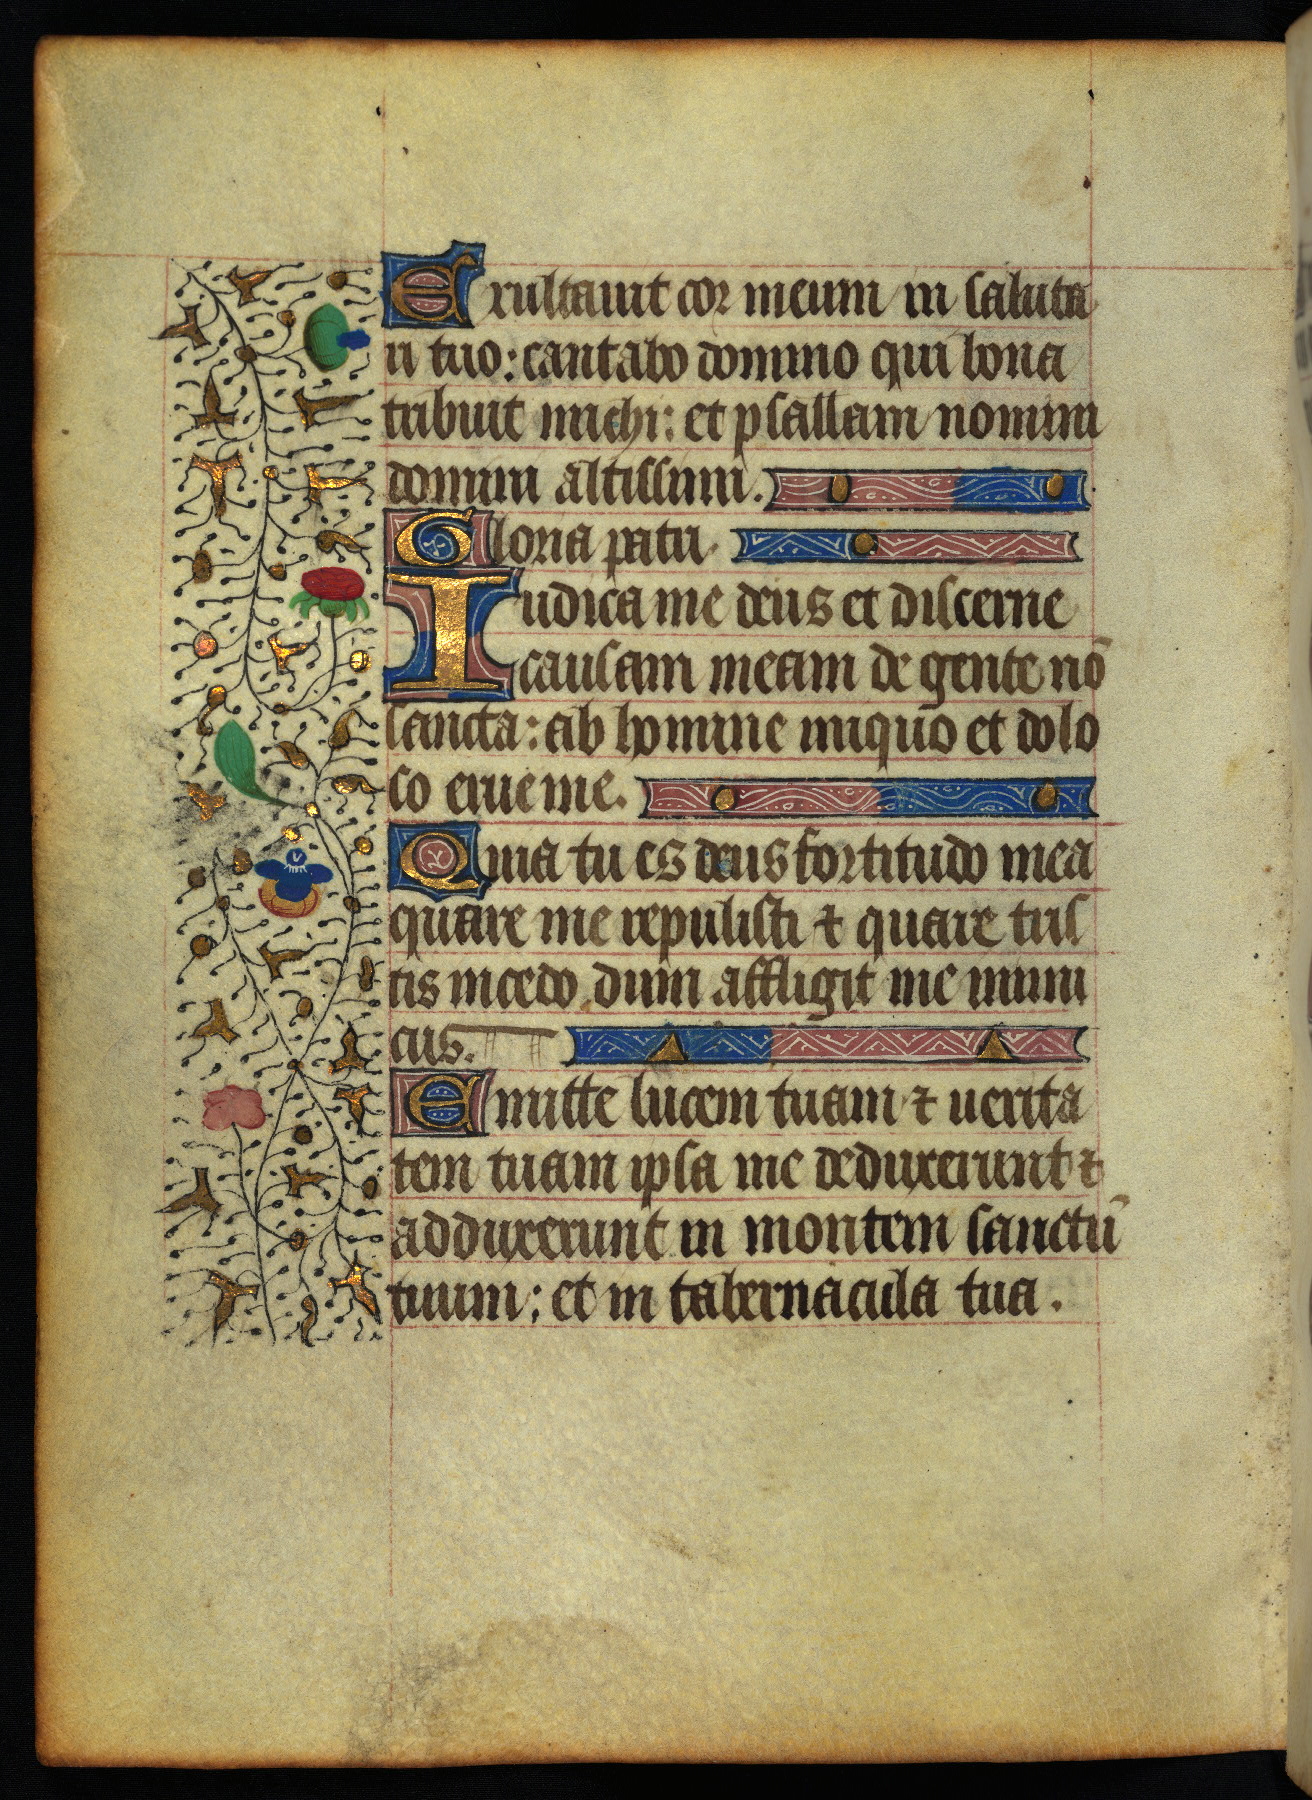 Exultauit cor meum in saluta
ri tuo: cantabo domino qui bona
tribuit michi: et psallam nomini
domini altissimi.
Gloria patri
Iudica me deus et discerne
causam meam de gente nō
sancta: ab homine iniquo et dolo
so erue me.
Quia tu es deus fortitudo mea
quare me repulisti ⁊ quare tris
tis incedo dum affligit me inimi
cus.
Emitte lucem tuam ⁊ uerita
tem tuam ipsa me deduxerunt ⁊
adduxerunt in montem sanctū
tuum: et in tabernacula tua.